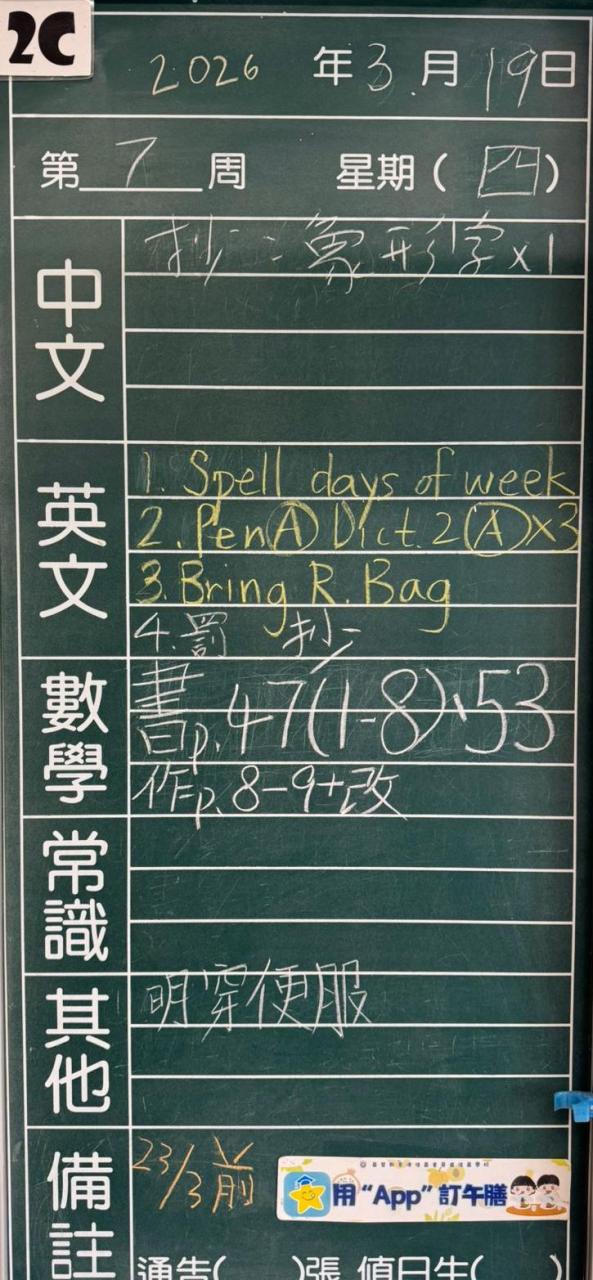 2C
2026 年 3 月 19 日
第 7 周 星期 ( 四 )
中文
抄:象形字x1
英文
1. Spell days of week
2. Pen(A) Dict. 2(A)x3
3. Bring R. Bag
4. 罰 抄
數學
書p.47(1-8)、53
作p.8-9+改
常識
其他
明穿便服
備註
23/3前
用“App”訂午膳
通告( )張 值日生( )